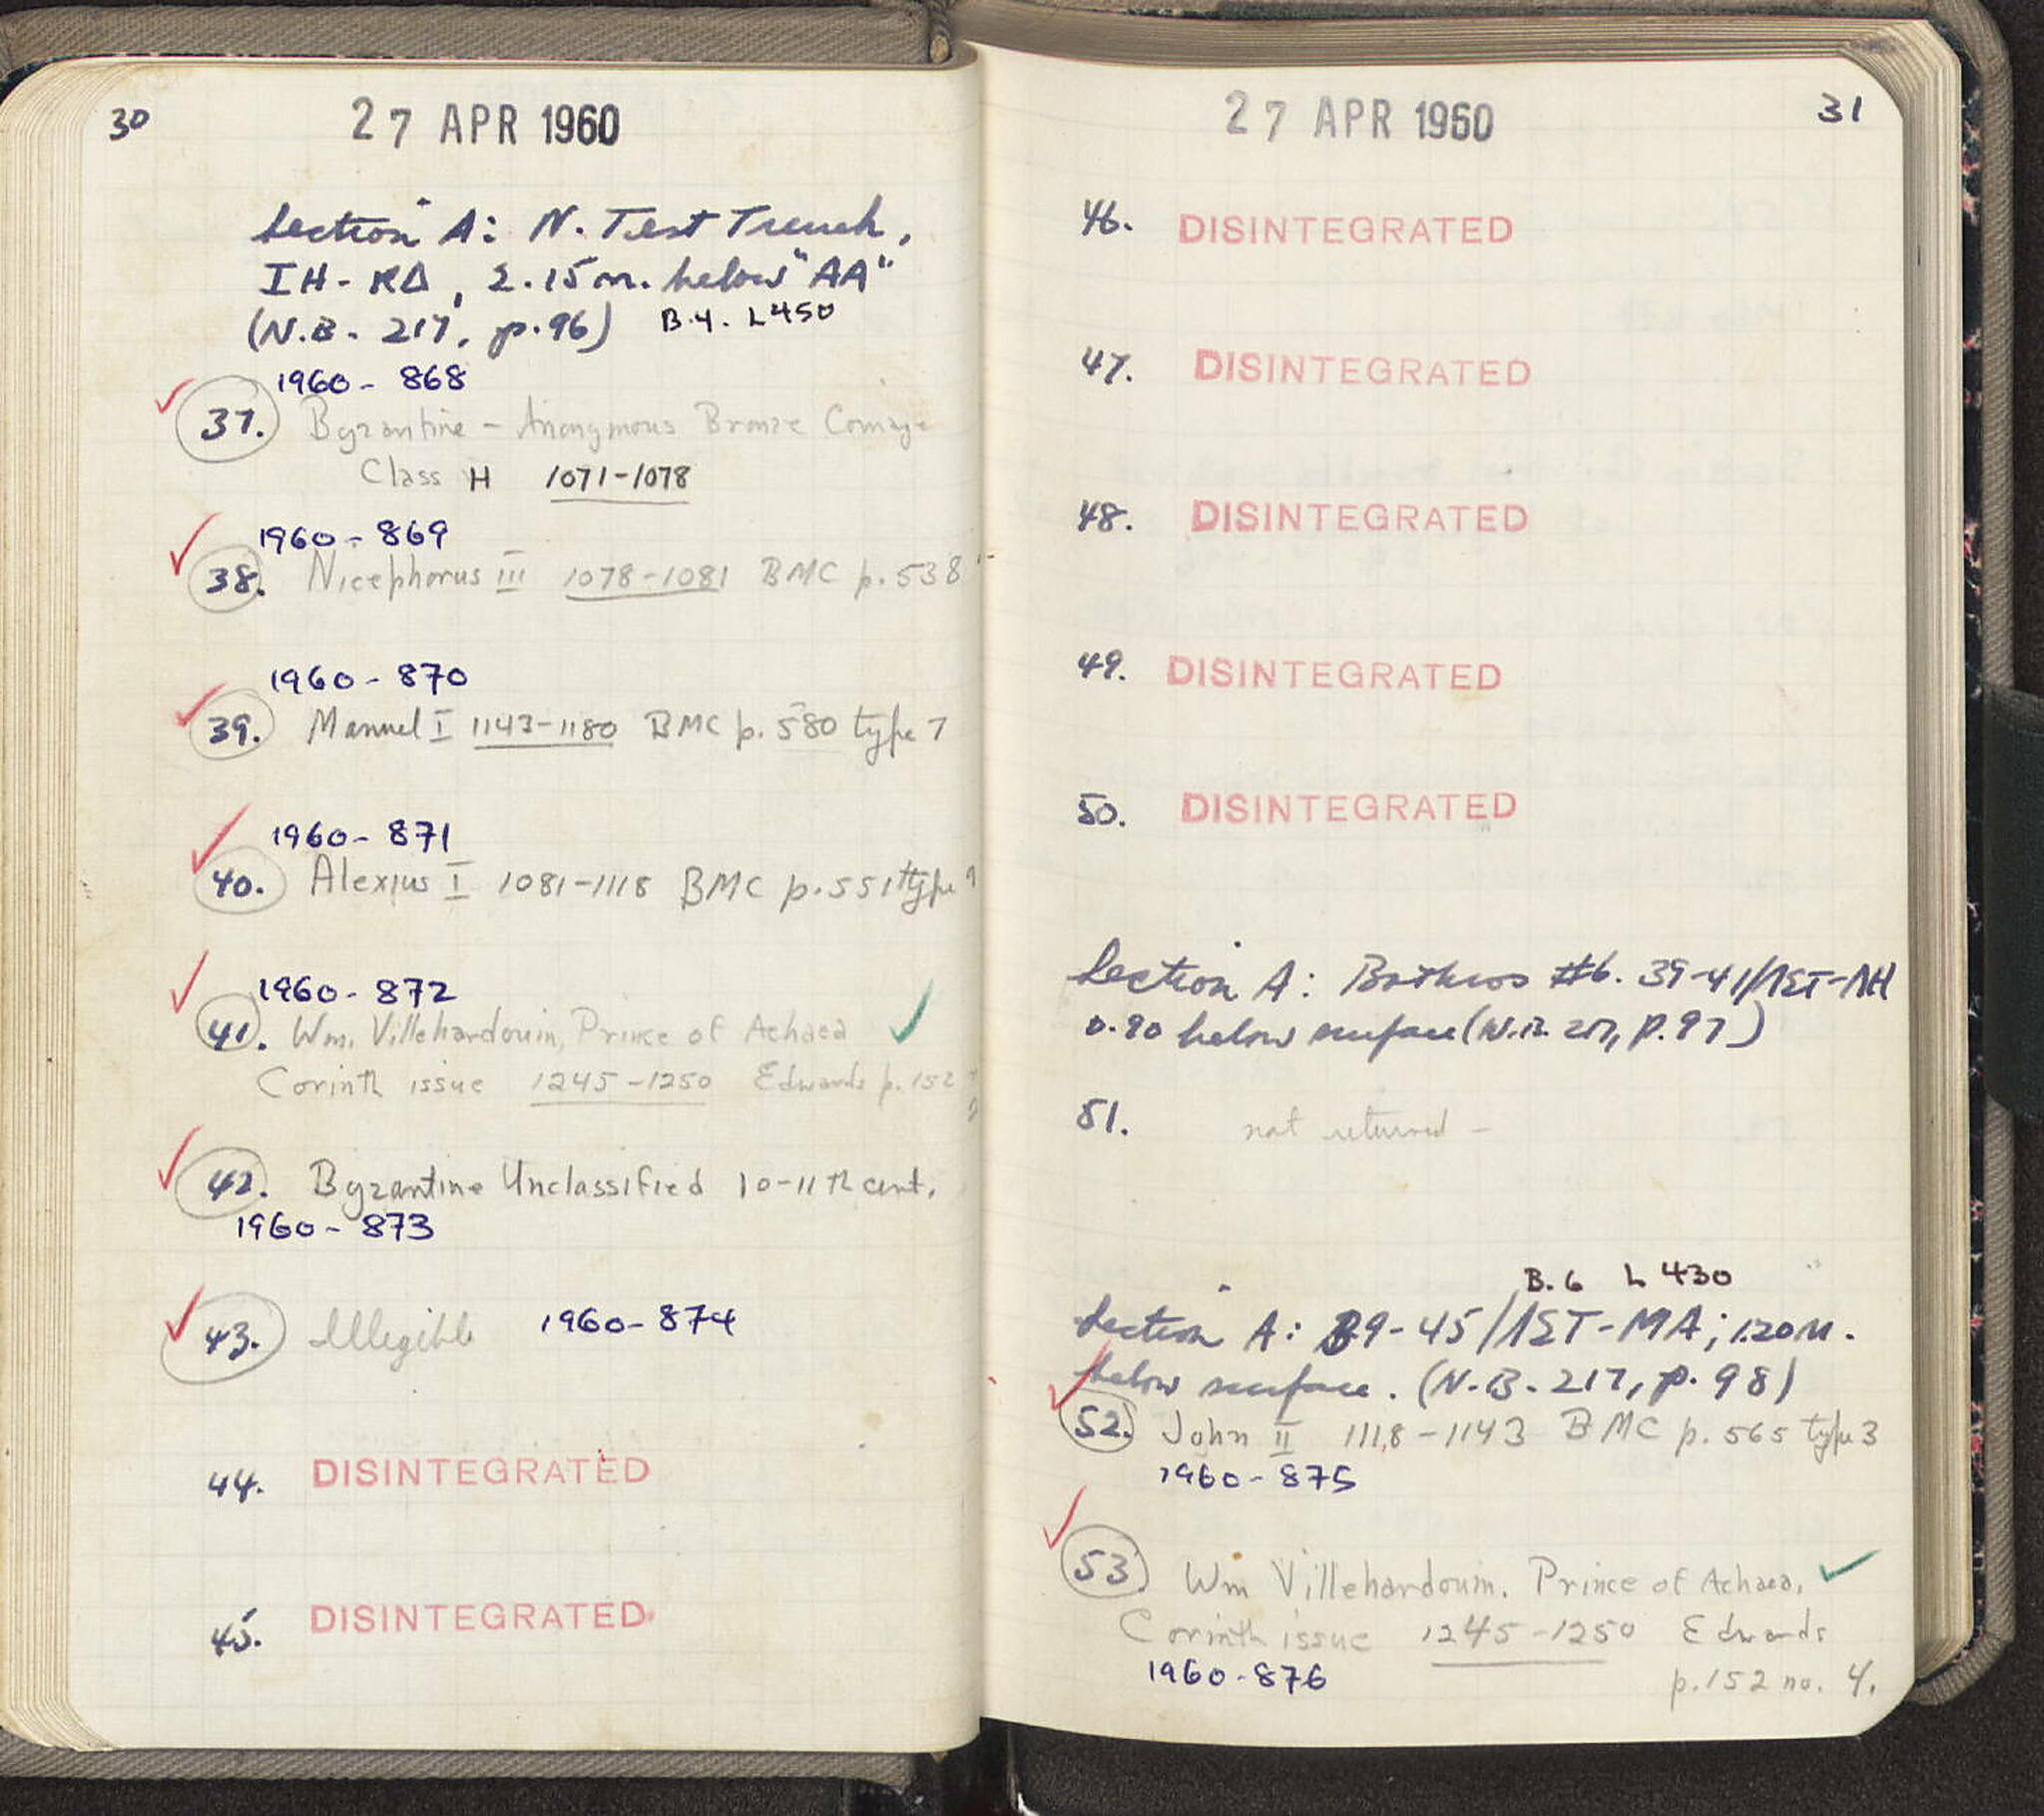 30
27 APR 1960
Section A: N. Test Trench,
IH-KΔ, 2.15m. below "AA"
(N.B. 217, p.96) B.4. L450
1960-868
37. Byzantine - Anonymous Bronze Coinage
Class H 1071-1078
1960-869
38. Nicephorus III 1078-1081 BMC p. 538
1960-870
39. Manuel I 1143-1180 BMC p. 580 type 7
1960-871
40. Alexius I 1081-1118 BMC p. 551 type
1960-872
41. Wm. Villehardouin, Prince of Achaea
Corinth issue 1245-1250 Edwards p. 152
42. Byzantine Unclassified 10-11th cent.
1960-873
43. Illegible 1960-874
44. DISINTEGRATED
45. DISINTEGRATED
27 APR 1960
31
46. DISINTEGRATED
47. DISINTEGRATED
48. DISINTEGRATED
49. DISINTEGRATED
50. DISINTEGRATED
Section A: Bothros #6. 39-41/ΛΣΤ-ΛΗ
0.90 below surface (N.B. 217, p.97)
51. not returned -
B.6 L 430
Section A: 39-45/ΛΣΤ-ΜΑ; 1.20m.
below surface. (N.B. 217, p. 98)
52. John II 1118-1143 BMC p. 565 type 3
1960-875
53 Wm Villehardouin. Prince of Achaea,
Corinth issue 1245-1250 Edwards
1960-876
p.152 no. 4.